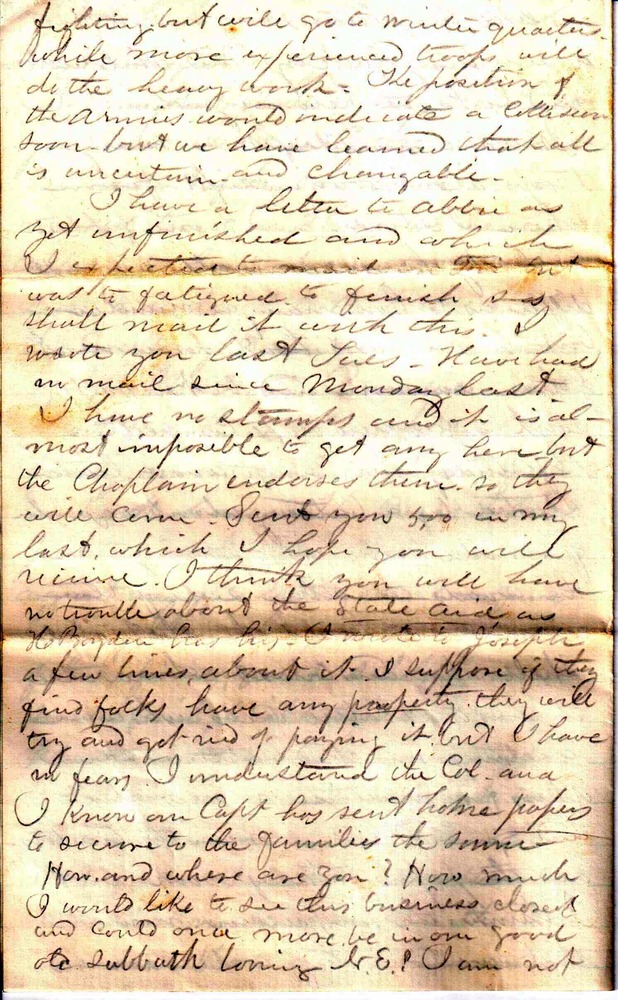 fighting, but will go to winter quarters.
while more experienced troops will
do the heavy work - The position of
the Armies would indicate a Collision
soon - but we have learned that all
is uncertain and changable -
I have a letter to Abbie as
yet unfinished and which
I expected to mail but
was to fatigued to finish so
shall mail it with this. I
wrote you last Tues - Have had
no mail since Monday last
I have no stamps and it is al-
most imposible to get any here but
the Chaplain endorses them so they
will come - Sent you 5,00 in my
last, which I hope you will
recieve. I think you will have
no trouble about the State aid as
has his - I wrote to Joseph
a few lines, about it. I suppose if they
find folks have any property they will
try and get rid of paying it but I have
no fears I understand the Col - and
I know our Capt has sent home papers
to secure to the families the same
How and where are you? How much
I would like to see this business closed
and could once more be in our good
old sabbath loving N.E.! I am not